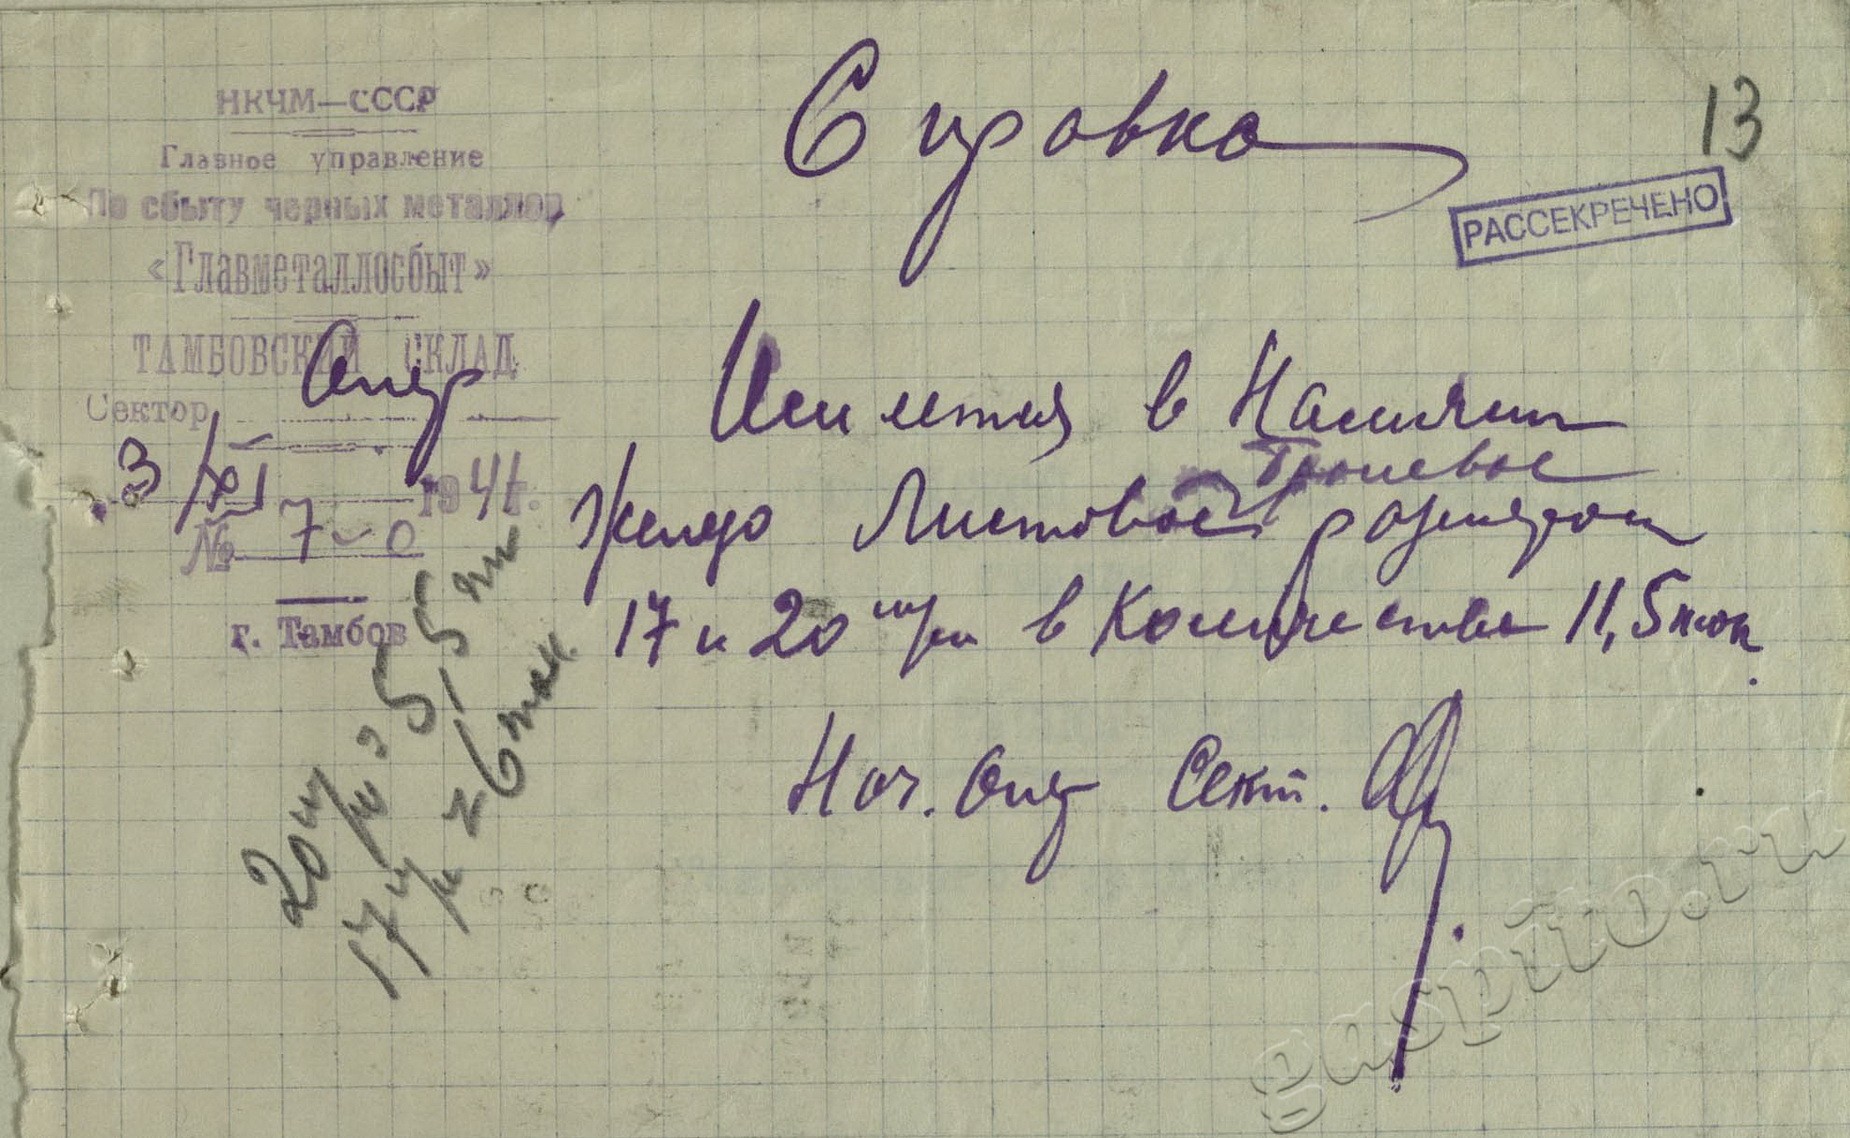 НКЧМ—СССР
Главное управление
По сбыту черных металлов
«Главметаллосбыт»
ТАМБОВСКИЙ СКЛАД
Сектор Опер
3/XI 1941г.
№ 7-0
г. Тамбов
Справка
13
РАССЕКРЕЧЕНО
Имеется в Наличии
Броневое
Железо Листовое размером
17 и 20 м/м в Количестве 11,5 тон.
Нач. Опер Сект.
20 м/м 5,5 тн
17 м/м 6 тон.
gaspito.ru